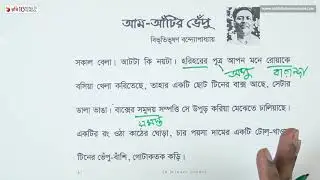 আম-আঁটির ভেঁপু
বিভূতিভূষণ বন্দ্যোপাধ্যায়
সকাল বেলা। আটটা কি নয়টা। হরিহরের পুত্র আপন মনে রোয়াকে
অপু
বারান্দা
বসিয়া খেলা করিতেছে, তাহার একটি ছোট টিনের বাক্স আছে, সেটার
ডালা ভাঙা। বাক্সের সমুদয় সম্পত্তি সে উপুড় করিয়া মেঝেতে ঢালিয়াছে।
সমস্ত
একটি রং ওঠা কাঠের ঘোড়া, চার পয়সা দামের একটি টোল-খাওয়া
টিনের ভেঁপু-বাঁশি, গোটাকতক কড়ি।